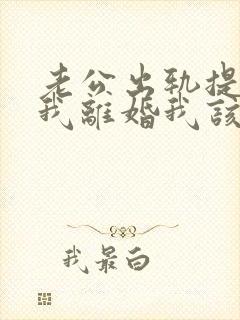 老公出轨提
我離婚我該
我最白